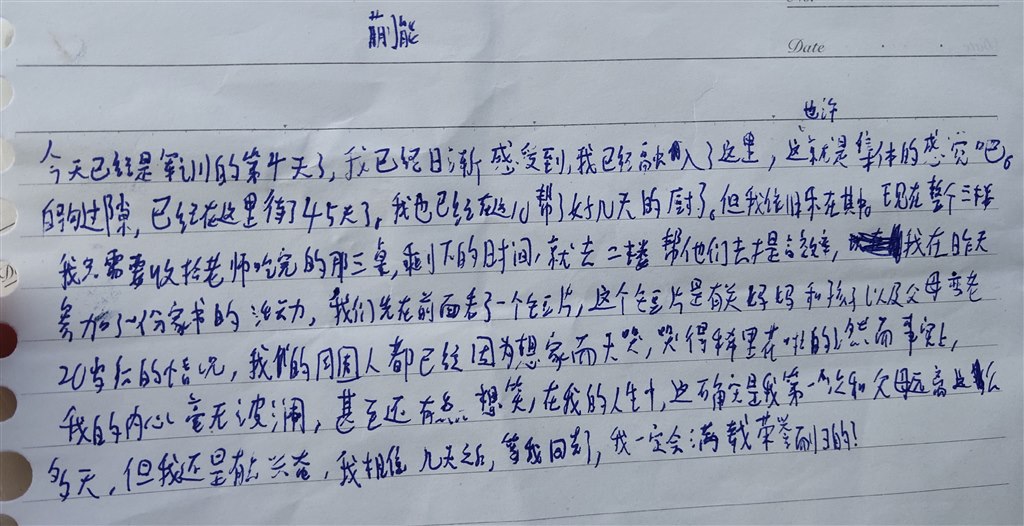 萠能
Date
也许
今天已经是军训的第4天了，我已经日渐感受到，我已经融入了这里，这就是集体的感觉吧。
的过隙，已经在这里待了45天了。我也已经在这儿帮了好几天的厨了。但我依旧乐在其中。现在整个三楼
我只需要收拾老师吃完的那三桌，剩下的时间，就去二楼帮他们去提高效率，我在昨天
参加了一份家书的活动，我们先在前面看了一个短片，这个短片是有关妈妈和孩子以及父母变老
20岁后的情况，我们的周围人都已经因为想家而大哭，哭得稀里花啦的！然而事实上，
我的内心毫无波澜，甚至还有点想笑，在我的人生中，这确实是我第一次和父母远离这么
多天，但我还是有点兴奋，我相信几天之后，等我回去了，我一定会满载荣誉而归的！